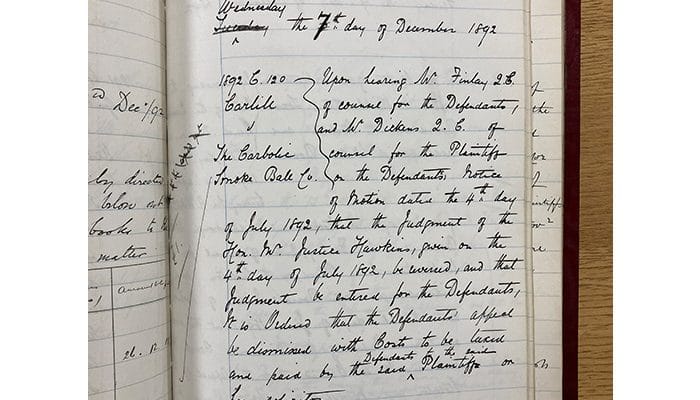 Wednesday
Tuesday the 7th day of December 1892
1892 C. 120
Carlill
v
The Carbolic
Smoke Ball Co.
Upon hearing Mr. Finlay Q.C.
of counsel for the Defendants,
and Mr. Dickens Q.C. of
counsel for the Plaintiff
on the Defendants Notice
of Motion dated the 4th day
of July 1892, that the Judgment of the
Hon. Mr. Justice Hawkins, given on the
4th day of July 1892, be reversed, and that
Judgment be entered for the Defendants,
It is Ordered that the Defendants' appeal
be dismissed with Costs to be taxed
Defendants to the said
and paid by the said Plaintiff or
Dec. /92
by directio
books to
matter
of
the
of